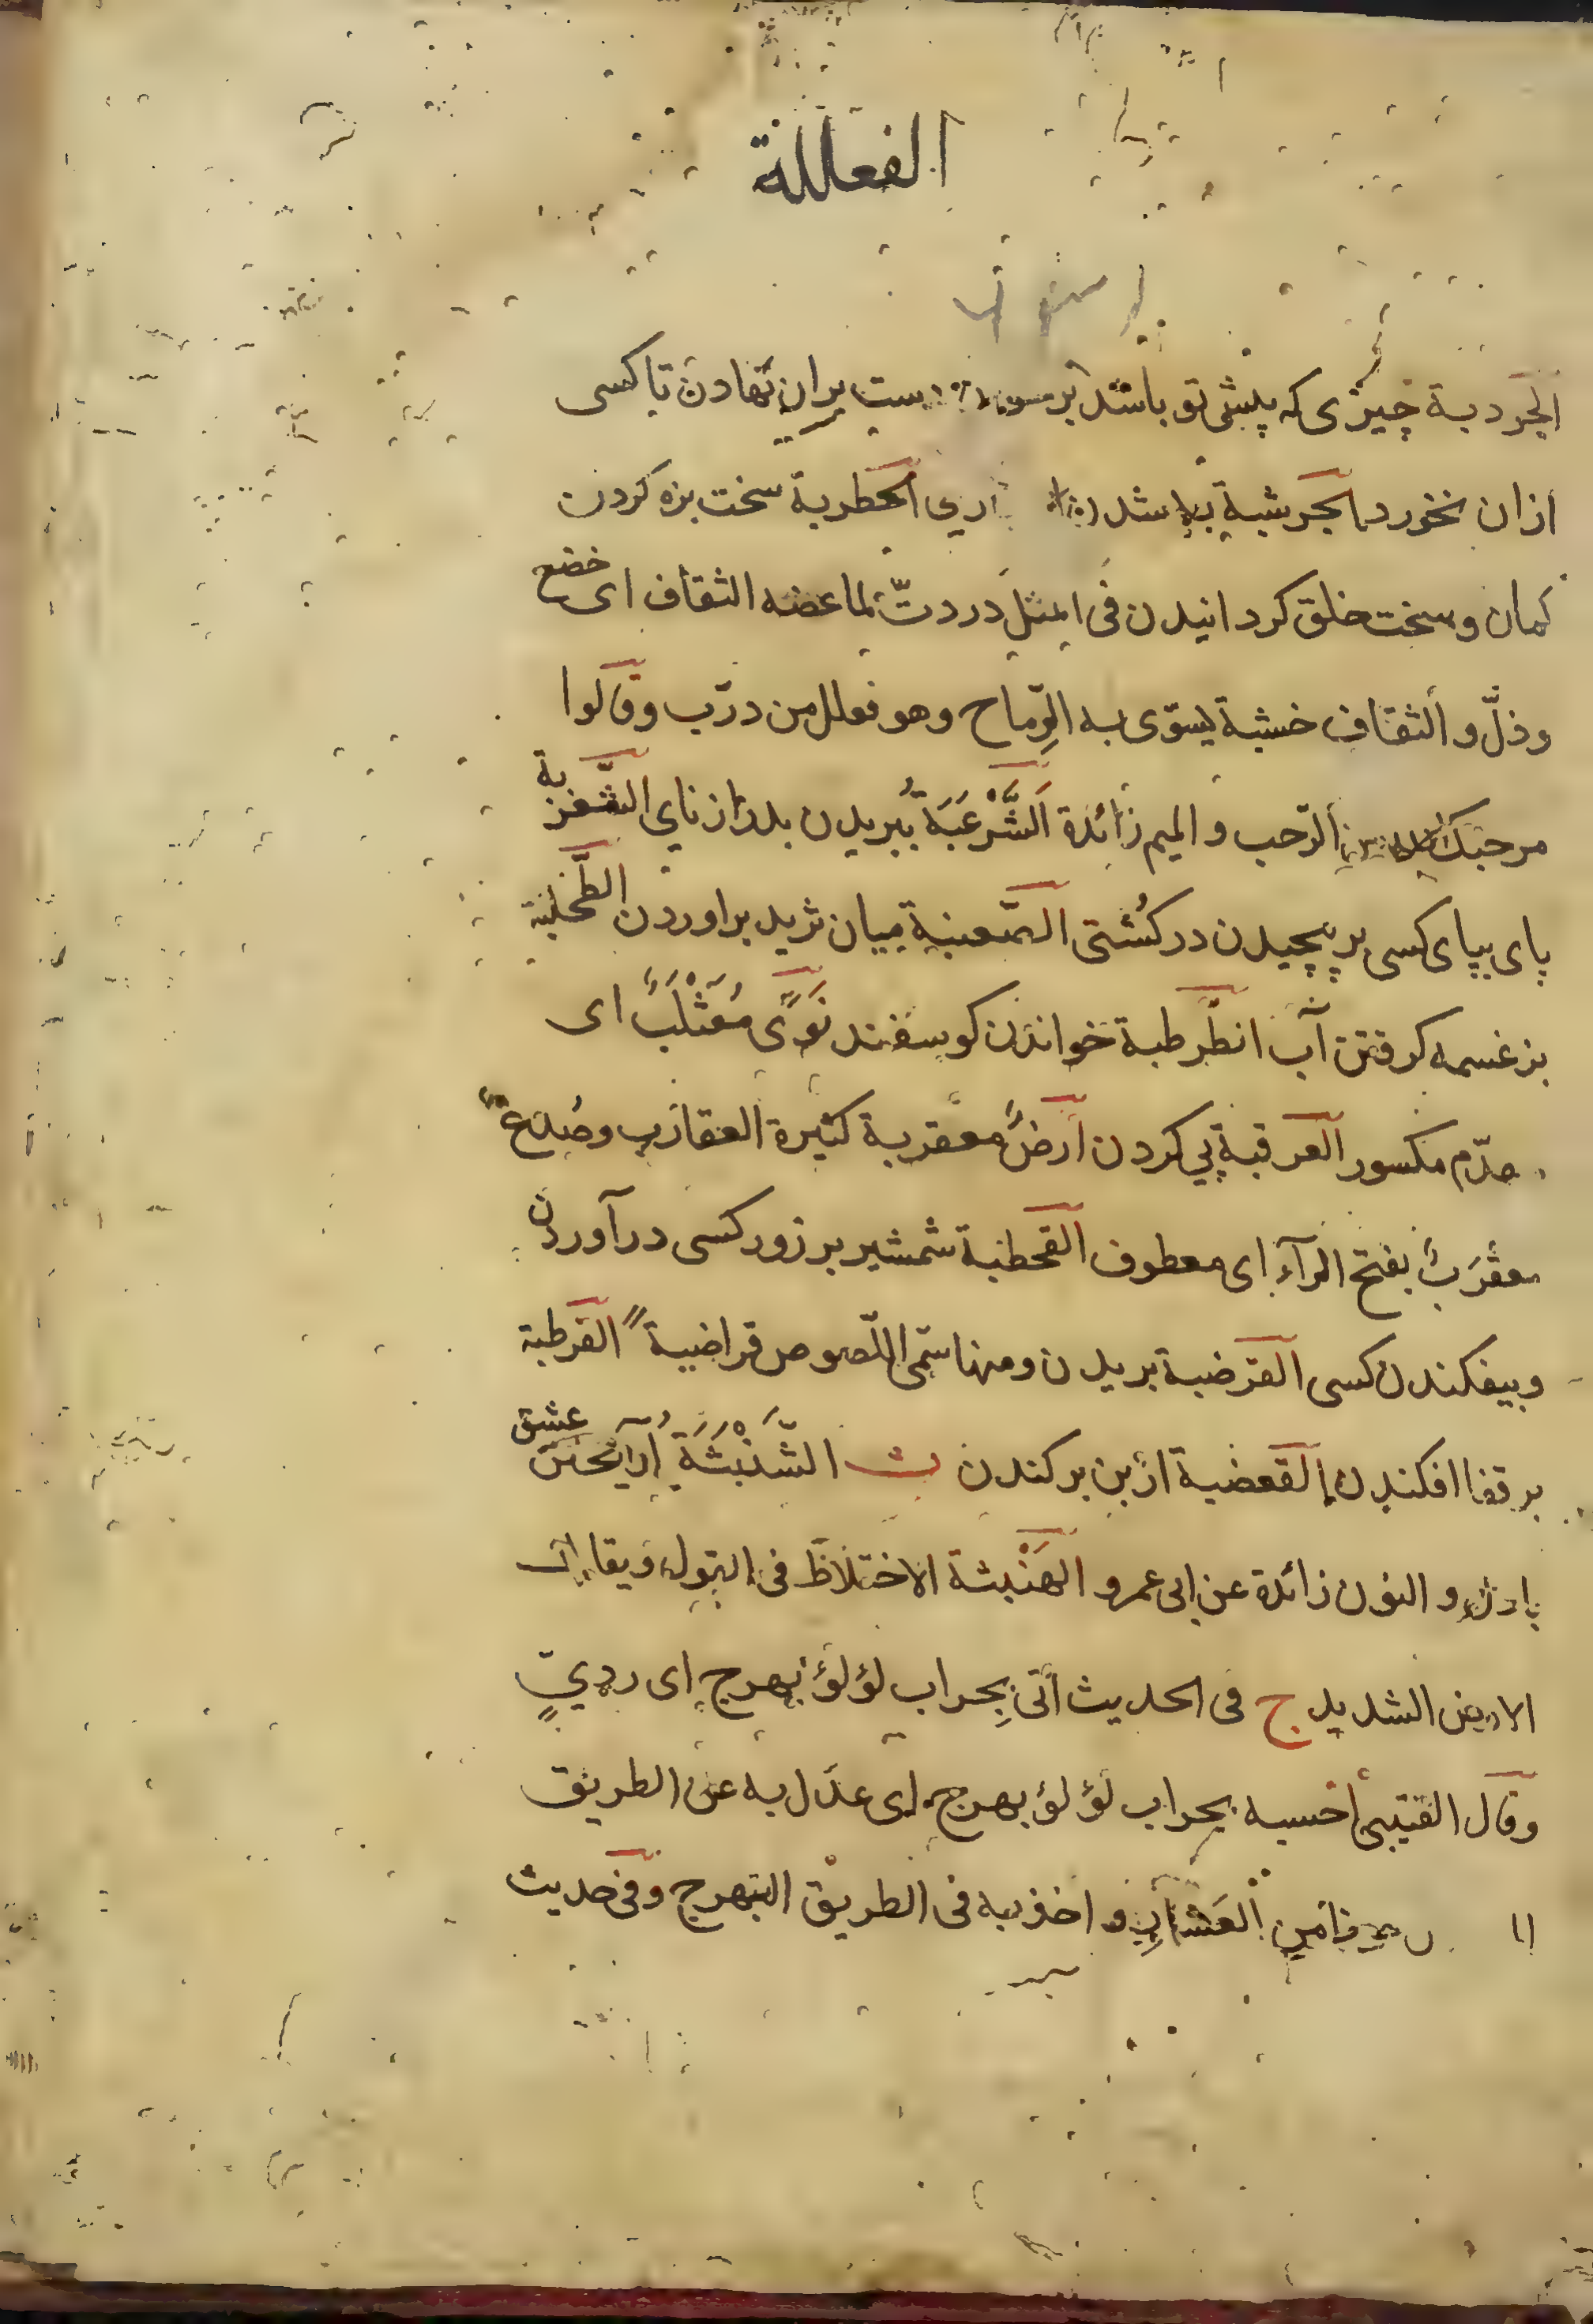 الفعللة
الجردبة چیزی که پیش تو باشد بر دست بران نهادن تا کسی
ازان نخورد الجرشبة الحطربة سخت بزه کردن
کمان و سخت خلق کردانیدن فی المثل دردبّ لما عضه الثقاف ای خضع
وذلّ و الثقاف خشبة یسوّی به الرّماح وهو فعلل من درّب وقالوا
مرحبک الرّحب و المیم زائدة اَلشَّرْعَبَةُ ببریدن بدرازنای الشّغزبة
پای بپای کسی بر پیچیدن در کُشتی الصّعنبة میان ثرید براوردن الطّحلبة
بزغسمه کرفتن آب الطّرطبة خواندن کوسفند نُؤًی مُعَثْلَبٌ ای
مهدّم مکسور العرقبة پی کردن ارضٌ معقربة کثیرة العقارب وصُدغٌ
معقرَبٌ بفتح الرآء ای معطوف القحطبة شمشیر بر زور کسی درآوردن
و بیفکندن کسی القرضبة بریدن ومنها سمّی اللّصوص قراضبةً القرطبة
بر قفا افکندن القعضبة از بن برکندن ث الشَّنْبَثَةُ عشق
و النون زائدة عن ابی عمرو الهَنْبثة الاختلاط فی القول ویقال
الامر الشدید ج فی الحدیث اُتی بِجراب لؤلؤ بهرج ای ردیٍّ
وقال القتیبی احسبه بجراب لؤلؤ بهرج ای عدل به عن الطریق
من العَشّار و اخذ به فی الطریق البهرج وفی حدیث